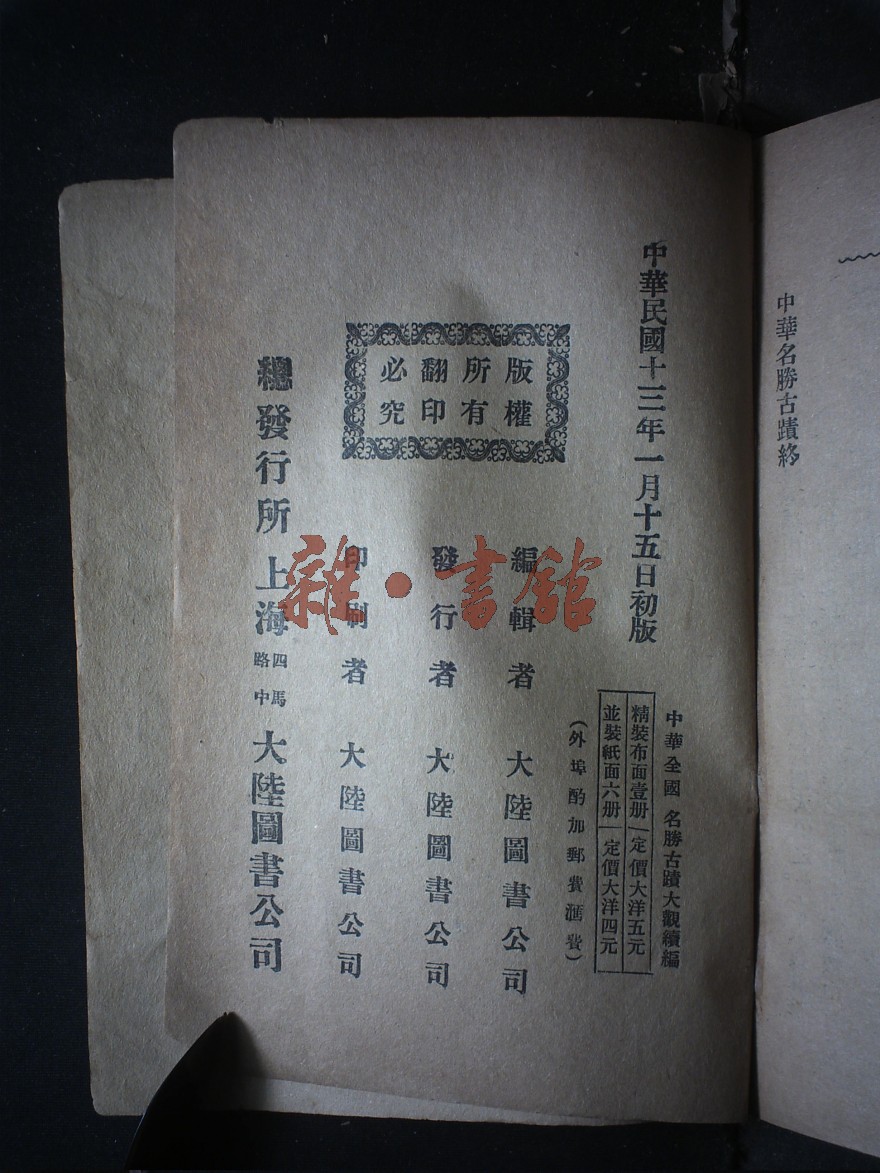 中華名勝古蹟終
中華民國十三年一月十五日初版
中華全國名勝古蹟大觀續編
精裝布面壹册 定價大洋五元
並裝紙面六册 定價大洋四元
(外埠酌加郵費滙費)
版權
所有
翻印
必究
編輯者 大陸圖書公司
發行者 大陸圖書公司
印刷者 大陸圖書公司
總發行所 上海四馬路中 大陸圖書公司
雜·書館